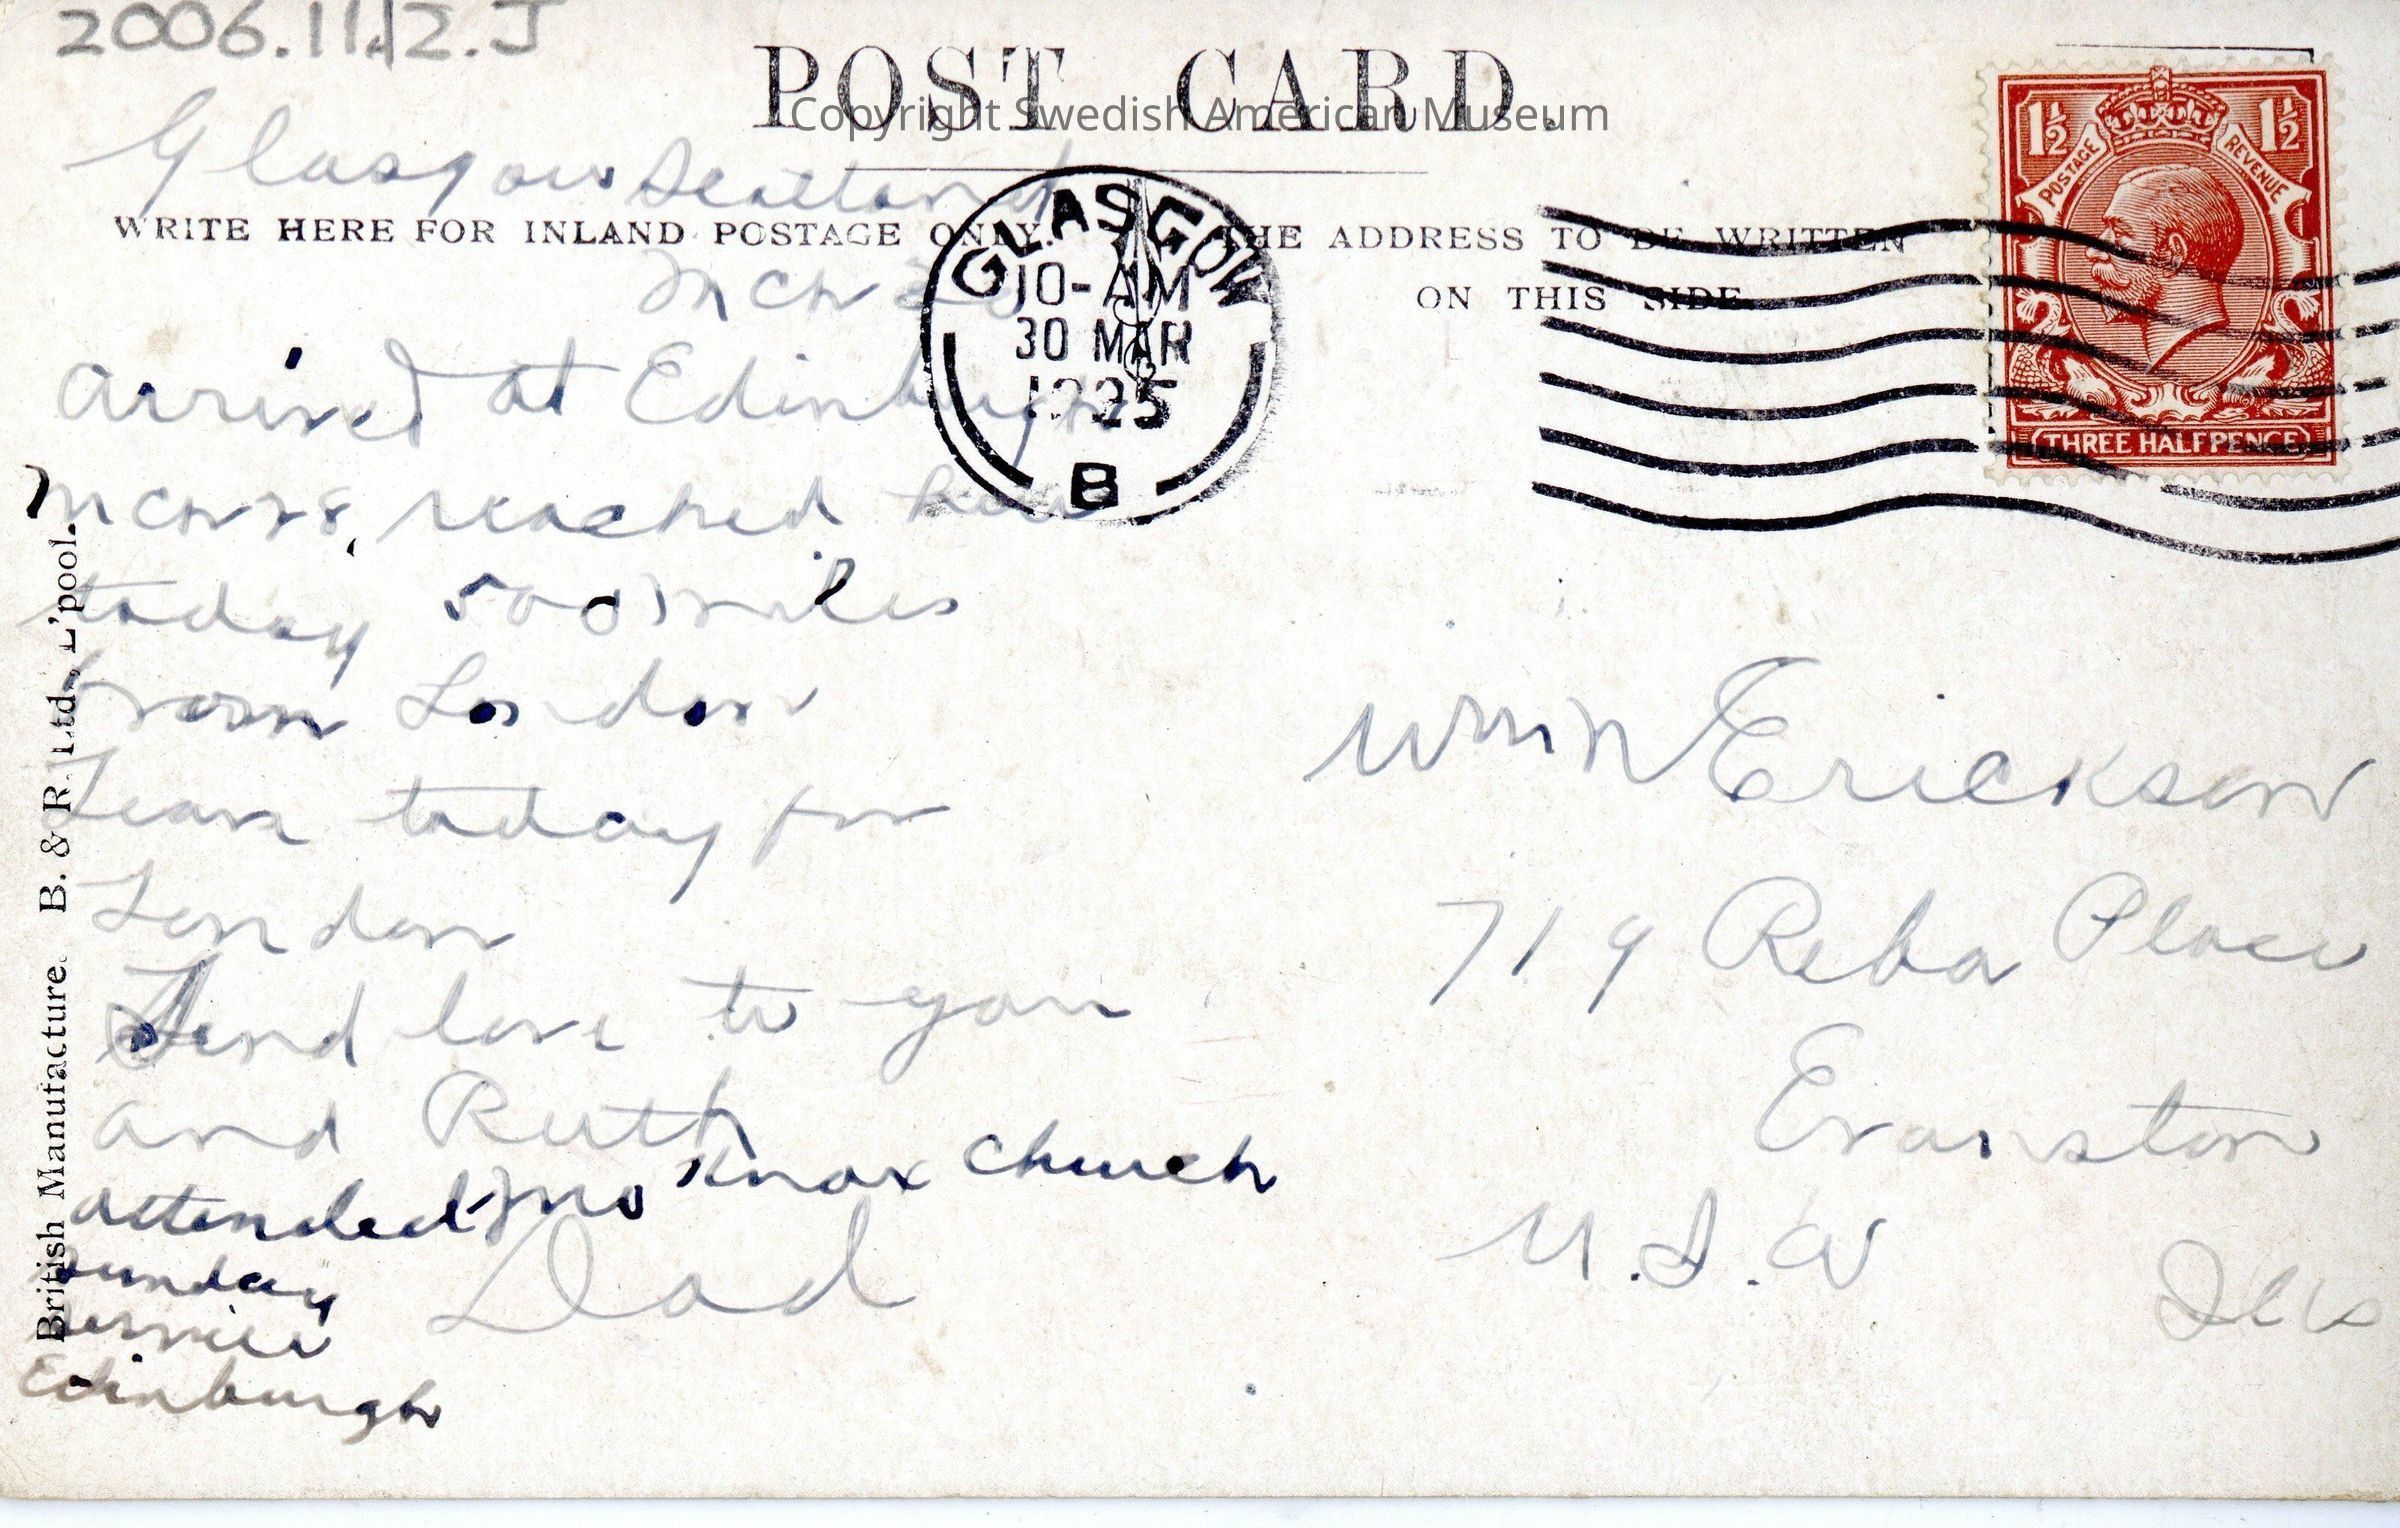 2006.11.12.J
POST CARD.
Copyright Swedish American Museum
Glasgow Scotland
WRITE HERE FOR INLAND POSTAGE ONLY.
THE ADDRESS TO BE WRITTEN
ON THIS SIDE
Mch
GLASGOW
10-AM
30 MAR
1925
B
1½ 1½
POSTAGE REVENUE
THREE HALFPENCE
arrived at Edinburgh
Mch 28, reached here
today 500 miles
from London
Leave today for
London
Send love to you
and Ruth
attended Jno Knox Church
Sunday
service
Edinburgh
Dad
Wm Erickson
719 Reba Place
Evanston
U.S.A
Ills
British Manufacture. B. & R. Ltd., L'pool.